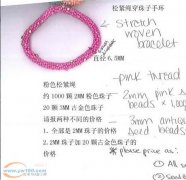 松紧绳穿珠子手环
stretch
woven
bracelet
直径6.5MM
粉色松紧绳
-pink thread
约1000颗2MM粉色珠子
2mm pink s
20颗3MM古金色珠子
beads x 100
请报两种不同的价格
3mm antiqu
1.全部是2MM珠子的价格
seed beads
2.2MM珠子加20颗古金色珠子
的价格
* please price as:
① All
② seed